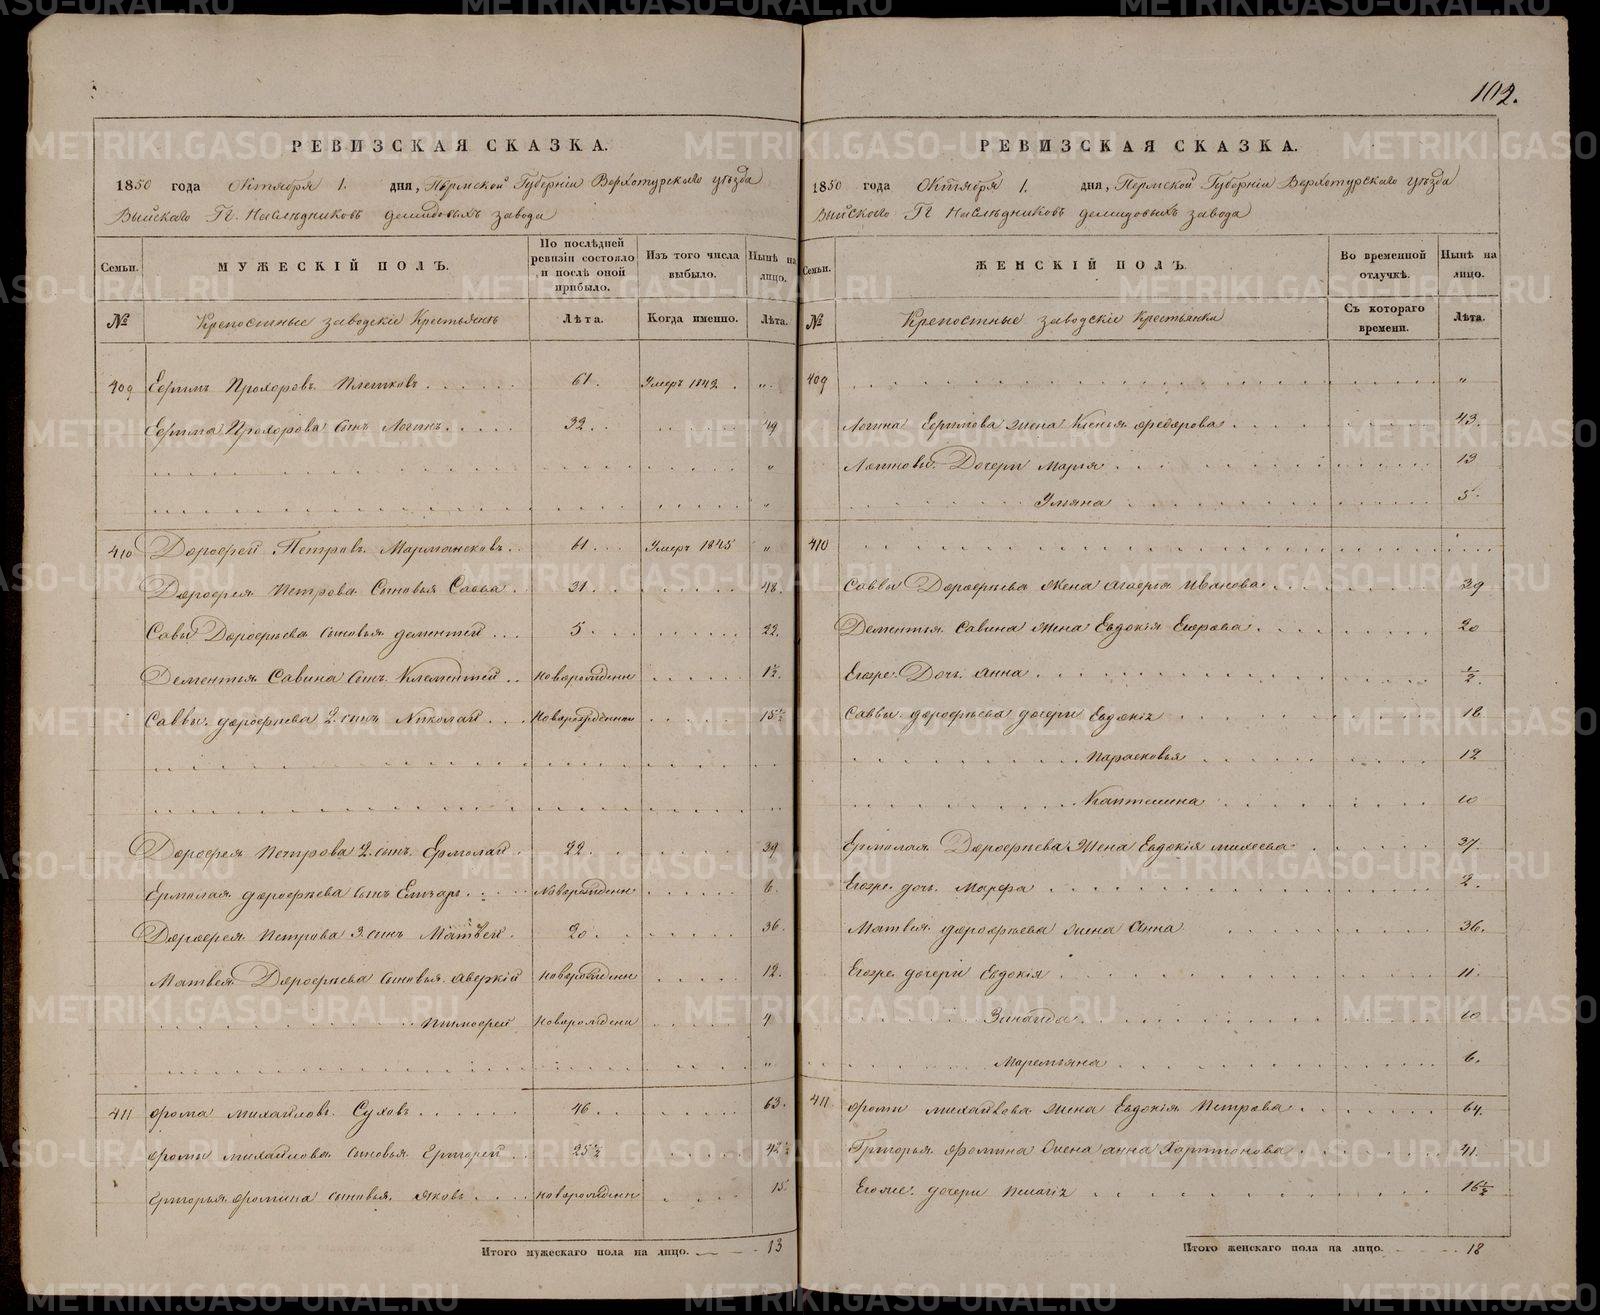 102.
РЕВИЗСКАЯ СКАЗКА.
1850 года Октября 1. дня, Пермской Губерніи Верхотурскаго уѣзда
Выйскаго Гг. Наслѣдниковъ Демидовыхъ завода
Семьи.
МУЖЕСКІЙ ПОЛЪ.
По послѣдней ревизіи состояло и послѣ оной прибыло.
Изъ того числа выбыло.
Нынѣ на лицо.
№
Крепостные заводскіе Крестьянъ
Лѣта.
Когда именно.
Лѣта.
409 Ефимъ Прохоровъ Плешковъ 61. Умеръ 1842. „
Ефима Прохорова сынъ Логинъ 32. 49
„
„
410 Дорофей Петровъ 61 Умеръ 1845 „
Дорофея Петрова Сыновья Савва 31. 48.
Савы Дорофѣева сыновья дементей 5 22.
Дементья Савина сынъ Клементей новорожденн 1½
Саввы дорофѣева 2. сынъ Николай Новорожденной 15½
Дорофея Петрова 2. сынъ Ермолай 22. 39
Ермолая дорофѣева сынъ Елизаръ Новорожденн 6.
Дорофея Петрова 3. сынъ Матвей 20. 36.
Матвея Дорофѣева сыновья аверкій новорожденн 12.
Тимофей Новорожденн 4
„
411 Фома михайловъ Суховъ 46 63.
Фомы михайлова сыновья Григорей 25½ 42½
Григорья Фомина сыновья Яковъ новорожденн 15
Итого мужескаго пола на лицо. 13
РЕВИЗСКАЯ СКАЗКА.
1850 года Октября 1. дня, Пермской Губерніи Верхотурскаго уѣзда
Выйскаго Гг Наслѣдниковъ демидовыхъ завода
Семьи.
ЖЕНСКІЙ ПОЛЪ.
Во временной отлучкѣ.
Нынѣ на лицо.
№
Крепостные заводскіе Крестьянки
Съ котораго времени.
Лѣта.
409 „
Логина Ефимова жена Ксенья Федорова 43.
Логиновы Дочери Марья 13
Ульяна 5.
410
Саввы Дорофѣева Жена Агафья Иванова 39
Дементья Савина жена Евдокія Егорова 20
Егоже Дочь анна ½
Саввы дорофѣева дочери Евдокія 18
Парасковья 12
Каптелина 10
Ермолая Дорофѣева Жена Евдокія михеева 37.
Егоже дочь Марфа 2.
Матвея дорофѣева жена Анна 36.
Егоже дочери Евдокія 11.
Зинаида 10
Маремьяна 6.
411 Фомы михайлова жена Евдокія Петрова 64.
Григорья Фомина жена анна Харитонова 41.
Егоже дочери Пелагія 16½
Итого женскаго пола на лицо. 18
METRIKI.GASO-URAL.RU